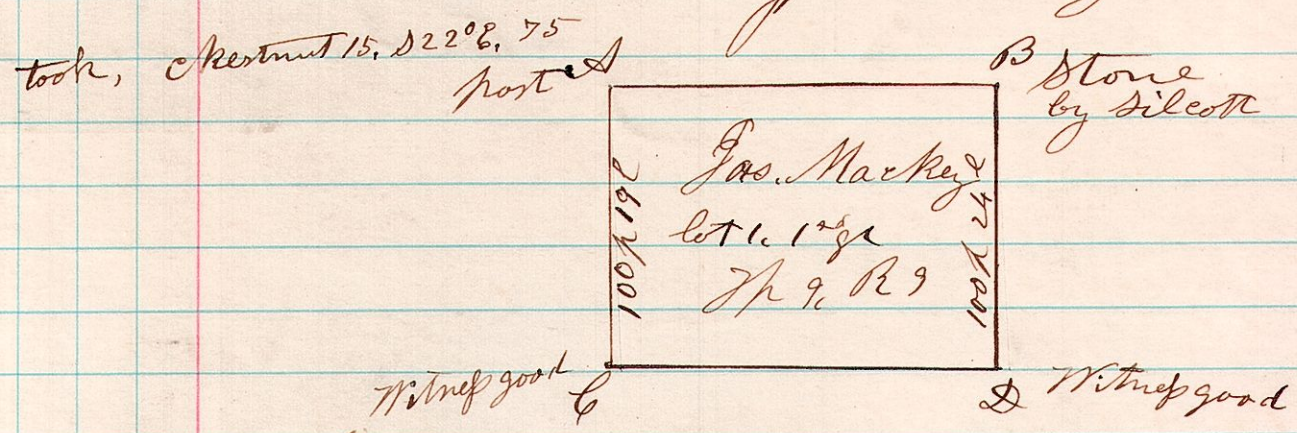 took, Chestnut 15, S22°E, 75
post A
B Stone
by Silcott
Jas. Mackey
lot 1, 1st qr
Tp 9, R 9
100 p 19 l
100 p 24 l
Witness good C
D Witness good